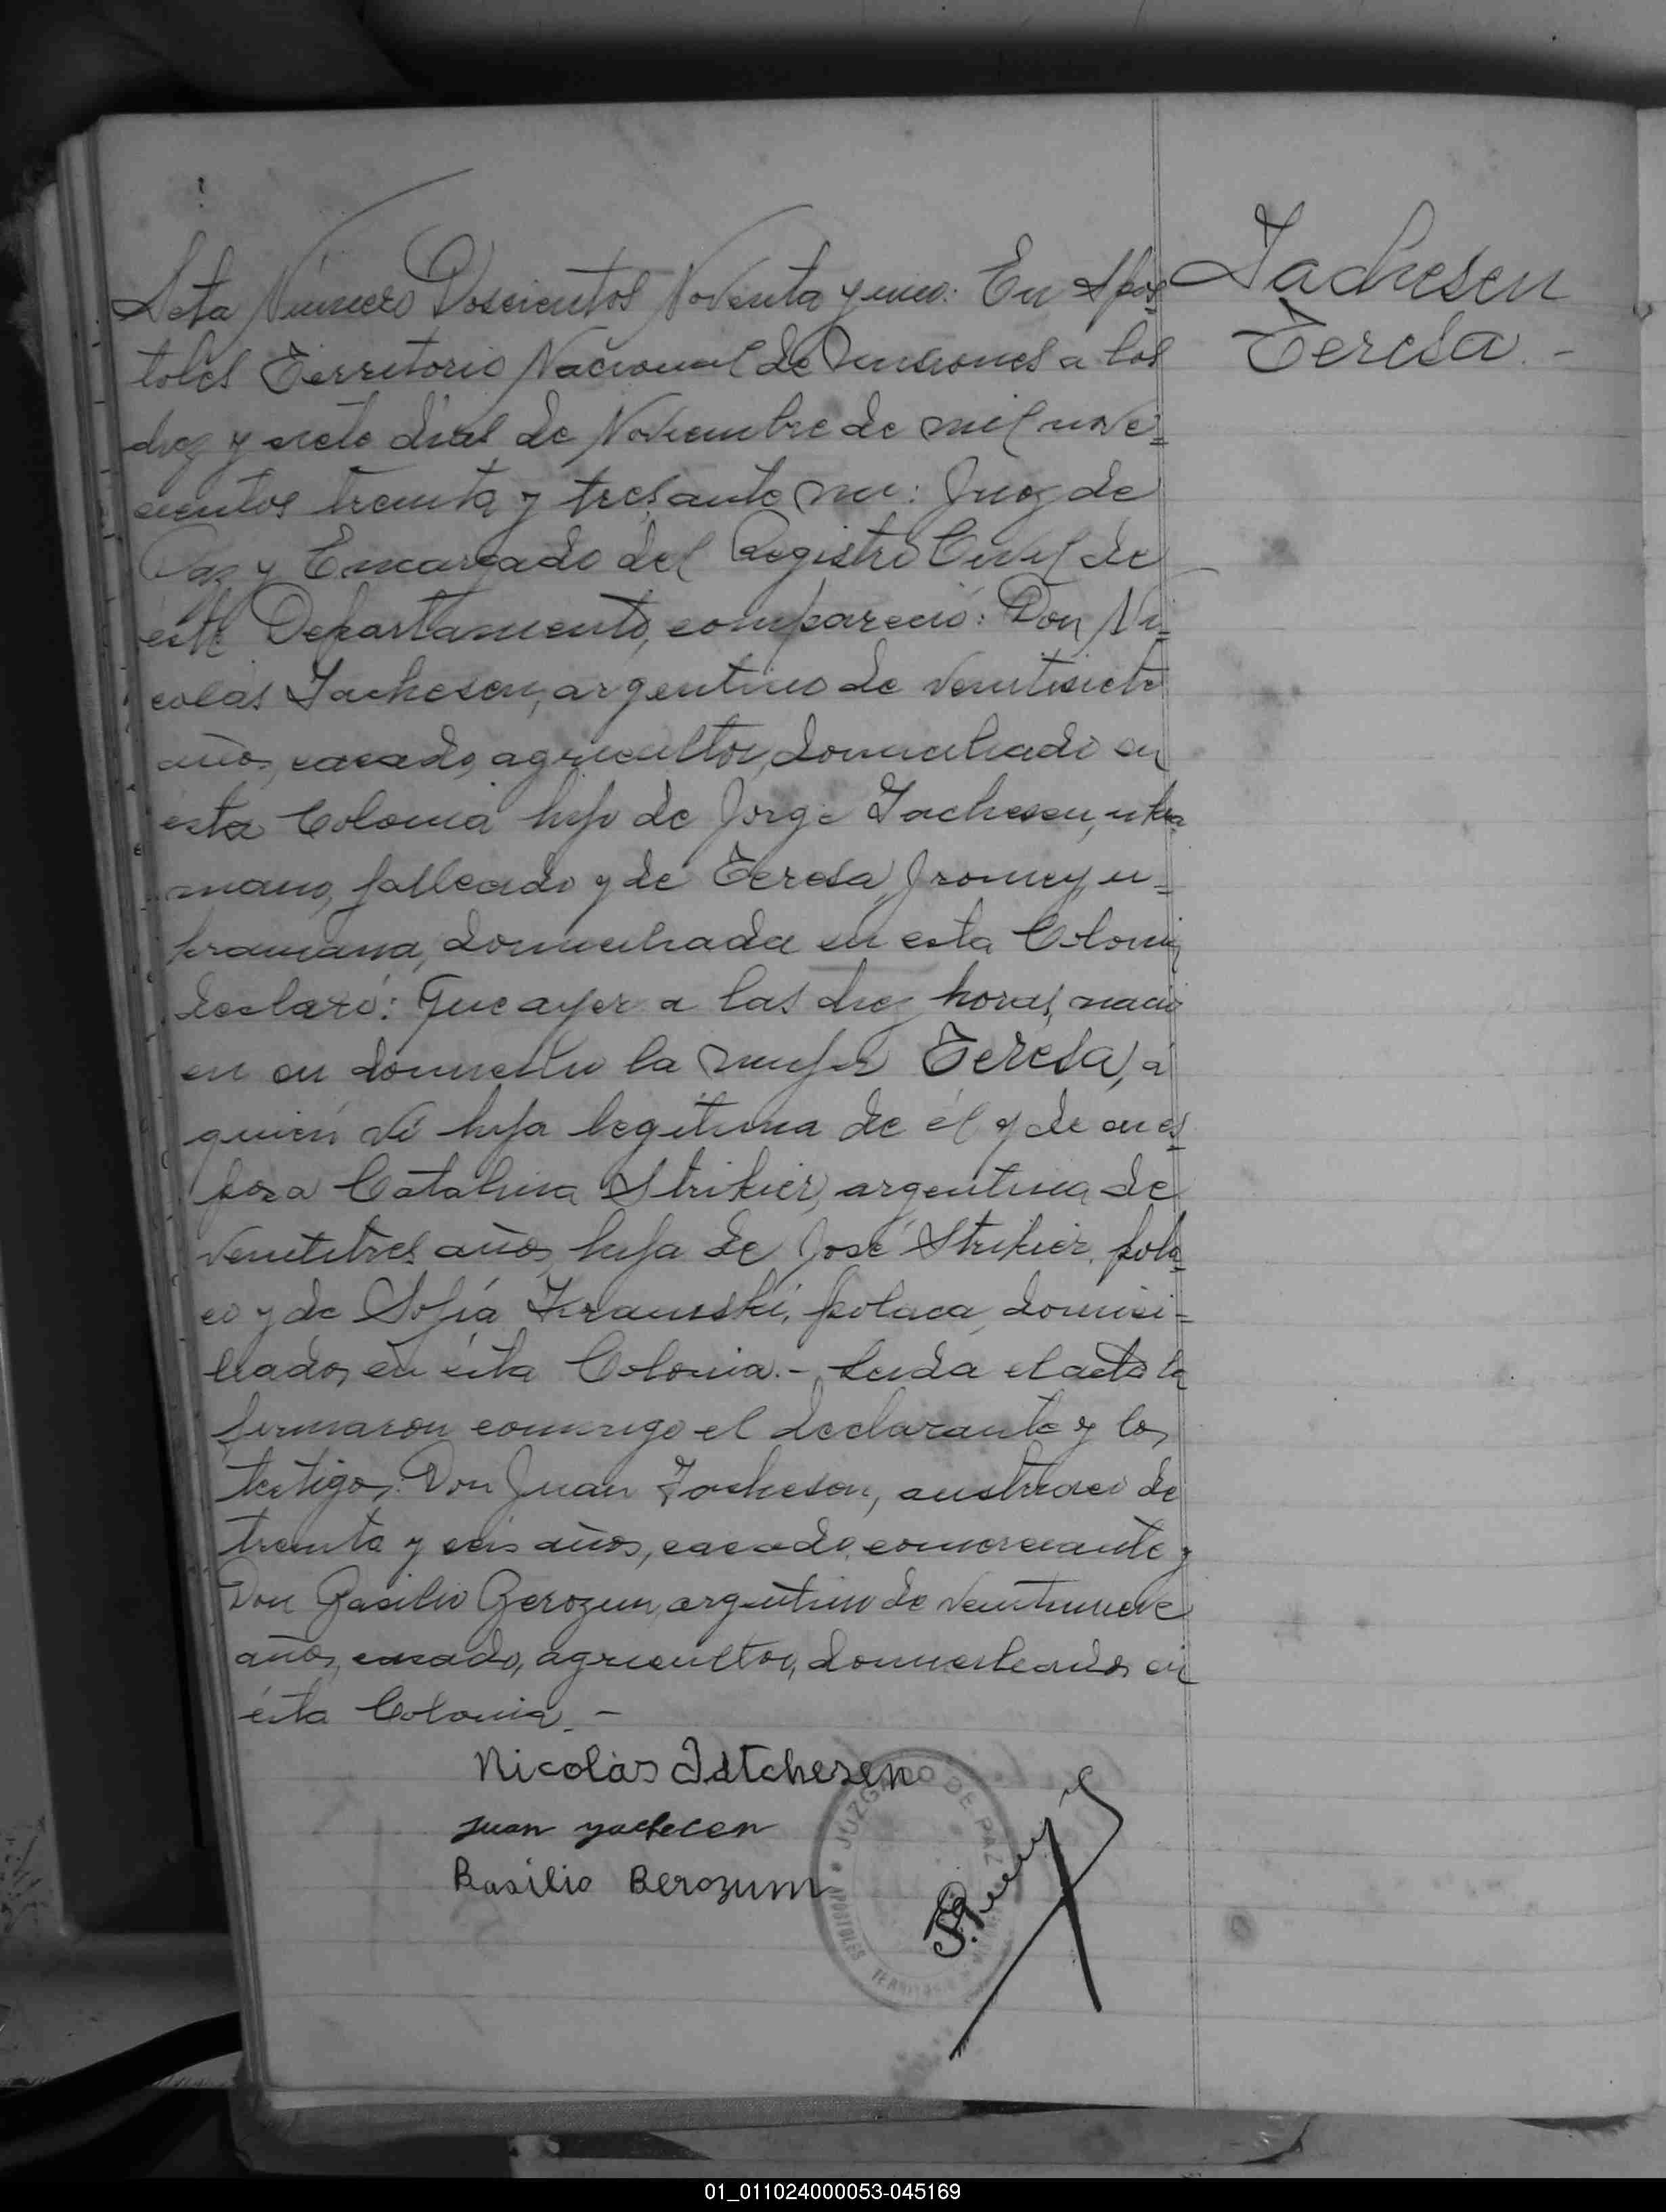 Iachesen
Teresa. -
Acta Número Doscientos Noventa y uno: En Após=
toles Territorio Nacional de Misiones a los
diez y siete dias de Noviembre de mil nove=
cientos treinta y tres, ante mi: Juez de
Paz y Encargado del Registro Civil de
éste Departamento, compareció: Don Ni=
colás Iachesen, argentino de veintisiete
años, casado, agricultor, domiciliado en
ésta Colonia hijo de Jorge Iachesen, ukra
niano, fallecido y de Teresa Jromey, u=
kraniana, domiciliada en esta Colonia
declaró: Que ayer a las diez horas, nació
en su domicilio la mujer Teresa, a
quien vi hija legitima de él y de su es=
posa Catalina Strikier, argentina de
veintitres años, hija de José Strikier, pola=
co y de Sofía Kramski, polaca, domici=
liados en ésta Colonia. - Leida el acta la
firmaron conmigo el declarante y los
testigos: Don Juan Iachesen, austriaco de
treinta y seis años, casado, comerciante y
Don Basilio Berozum, argentino de veintinueve
años, casado, agricultor, domiciliados en
ésta Colonia. -
Nicolás Iatchesen
Juan yachecen
Basilio Berozum
JUZGADO DE PAZ
APOSTOLES TERRITORIO
01_011024000053-045169